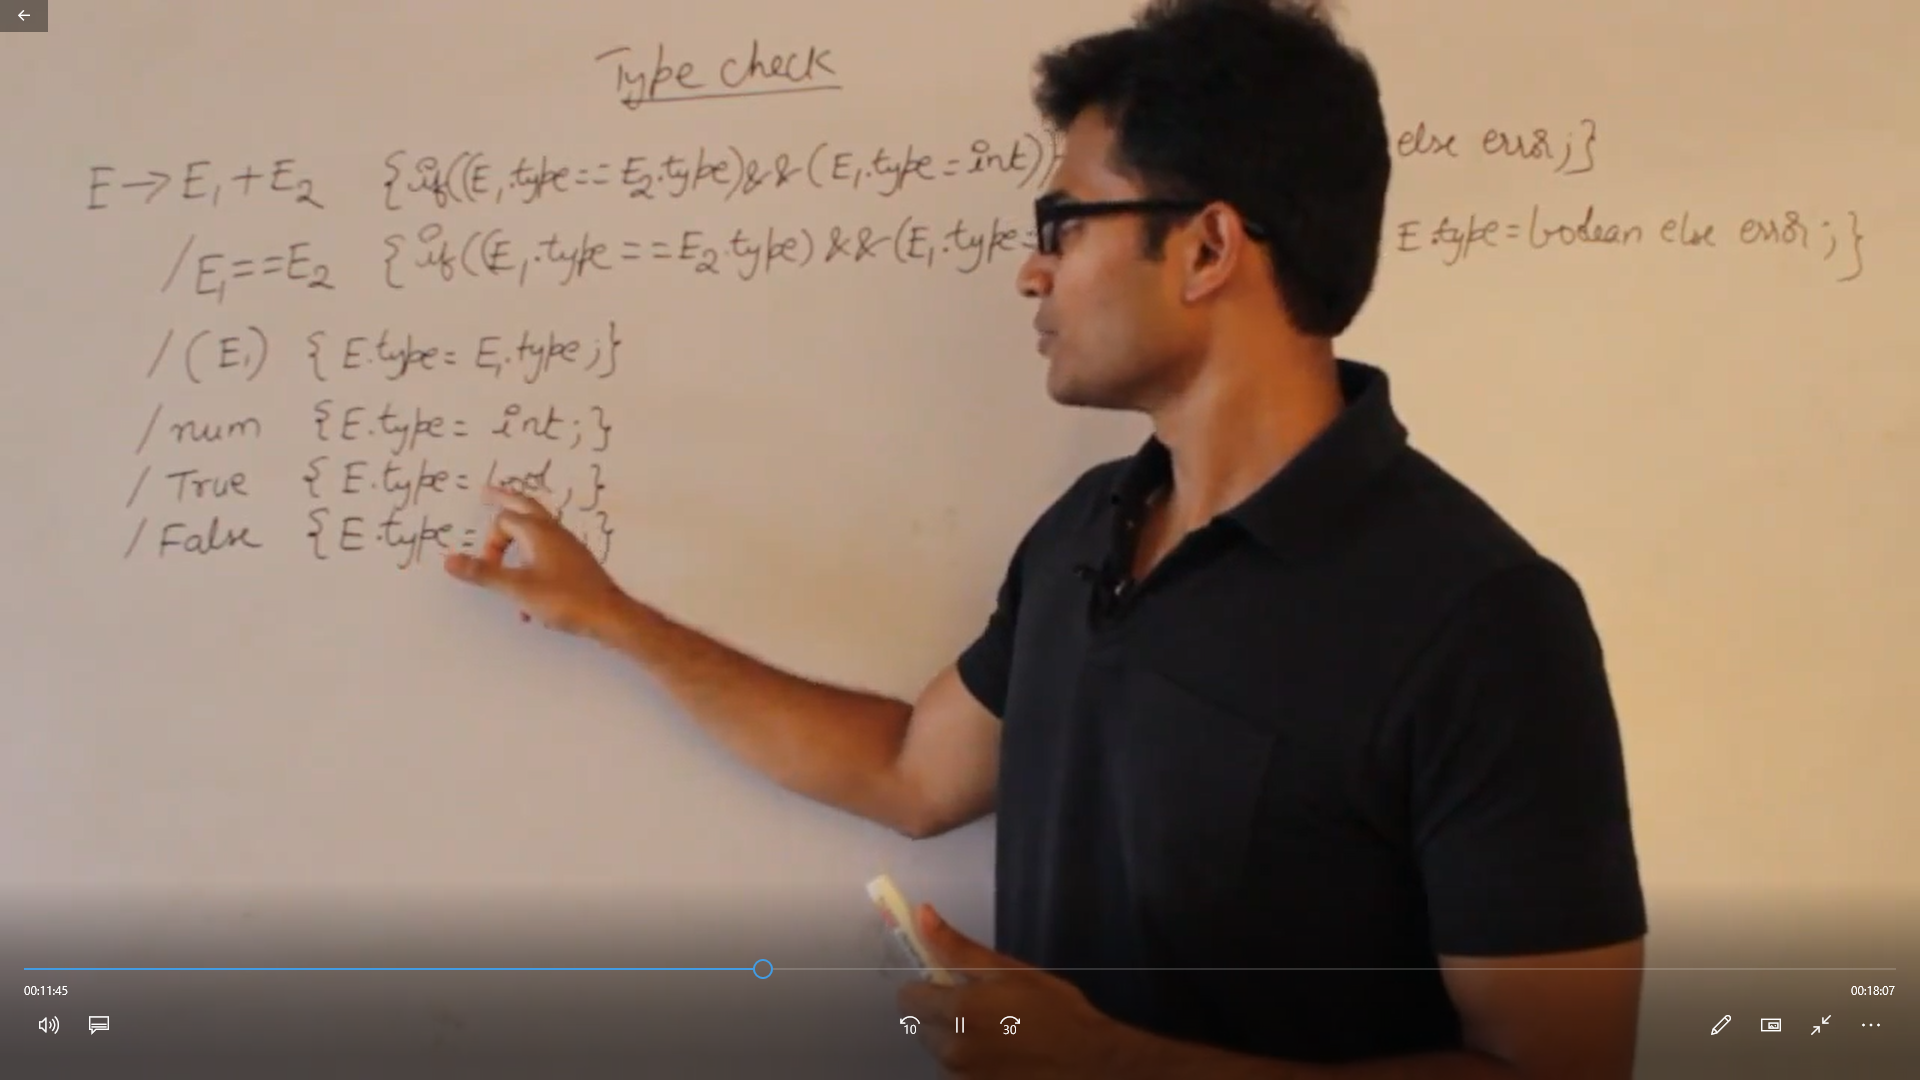 Type check
E → E₁ + E₂ {if((E₁.type == E₂.type) && (E₁.type = int)) else error;}
/ E₁ == E₂ {if((E₁.type == E₂.type) && (E₁.type = E.type = boolean else error;}
/ (E₁) {E.type = E₁.type;}
/ num {E.type = int;}
/ True {E.type = bool;}
/ False {E.type = ;}
00:11:45
00:18:07
10
30